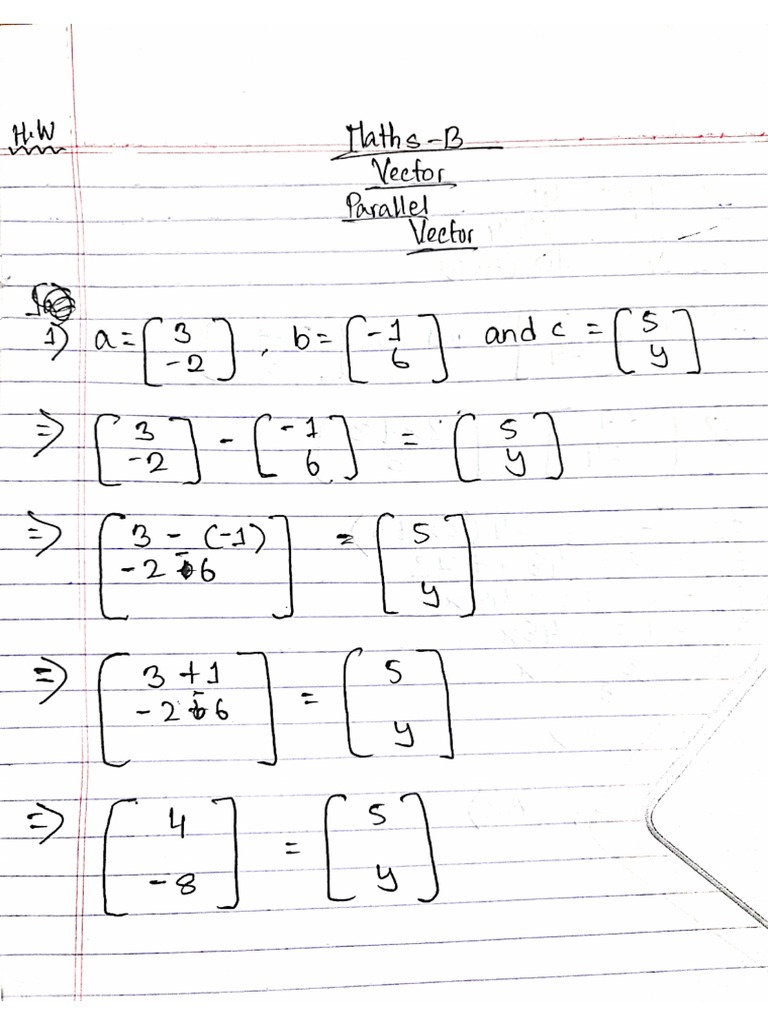 H.W
Maths-B
Vector
Parallel
Vector
1) a = [3 -2], b = [-1 6] and c = [5 y]
⇒ [3 -2] - [-1 6] = [5 y]
⇒ [3 - (-1) -2 - 6] = [5 y]
⇒ [3 + 1 -2 - 6] = [5 y]
⇒ [4 -8] = [5 y]